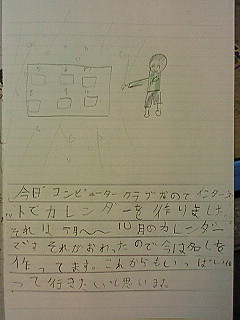 今日コンピューター クラブなのでインターネ
ットでカレンダーを作りました。
それは、ヶ月〜〜10月のカレンダー
です それがおわったので今は名しを
作ってます。これからもいっぱい作
って行きたいと思います